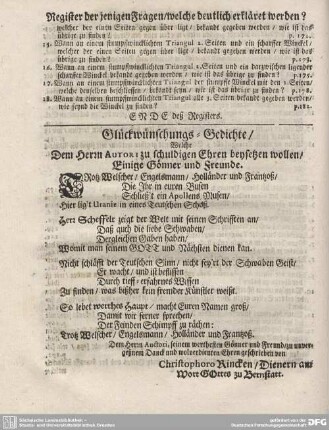 Register der jenigen Fragen/ welche deutlich erkläret werden?
welcher der einen Seiten gegen über ligt/ bekandt gegeben werden/ wie ist das
übrige zu finden? p. 172.
15. Wann an einem stumpfwincklichten Triangul 2. Seiten und ein scharffer Winckel/
welcher der einen Seiten gegen über ligt/ bekandt gegeben werden/ wie ist das
übrige zu finden? p. 175.
16. Wann an einem stumpfwincklichten Triangul 2. Seiten und ein darzwischen ligender
scharffer Winckel bekandt gegeben werden/ wie ist das übrige zu finden?
17. Wann an einem stumpfwincklichten Triangul der stumpffe Winckel mit den 2. Seiten/
welche denselben beschliessen/ bekandt seyn/ wie ist das übrige zu finden? p. 178.
18. Wann an einem stumpfwincklichten Triangul alle 3. Seiten bekandt gegeben werden/
wie seynd die Winckel zu finden?
ENDE deß Registers.
Glückwünschungs-Gedichte/
Welche
Dem Herrn AUTORI zu schuldigen Ehren beysetzen wollen/
Einige Gönner und Freunde.
TRotz Welscher/ Engelsmann/ Holländer und Frantzoß/
Die Ihr in euren Busen
Schließ't ein Apollens Musen/
Hier lig't Uranie in eines Teutschen Schoß.
Herr Scheffelt zeigt der Welt mit seinen Schrifften an/
Daß auch die liebe Schwaben/
Dergleichen Gaben haben/
Womit man seinem GOTT und Nächsten dienen kan.
Nicht schläfft der Teutschen Sinn/ nicht fey'rt der Schwaben Geist/
Er wacht/ und ist beflissen
Durch tieff-erfahrnes Wissen
Zu finden/ was bißher kein fremder Künstler weist.
So lebet werthes Haupt/ macht Euren Namen groß/
Damit wir ferner sprechen/
Der Feinden Schimpff zu rächen:
Trotz Welscher/ Engelsmann/ Holländer und Frantzoß.
Dem Herrn Auctori, seinem werthesten Gönner und Freund/zu unver-
geßnem Danck und wolverdienten Ehren geschrieben von
Christophoro Rincken/ Dienern am
Wort GOttes zu Bernstatt.